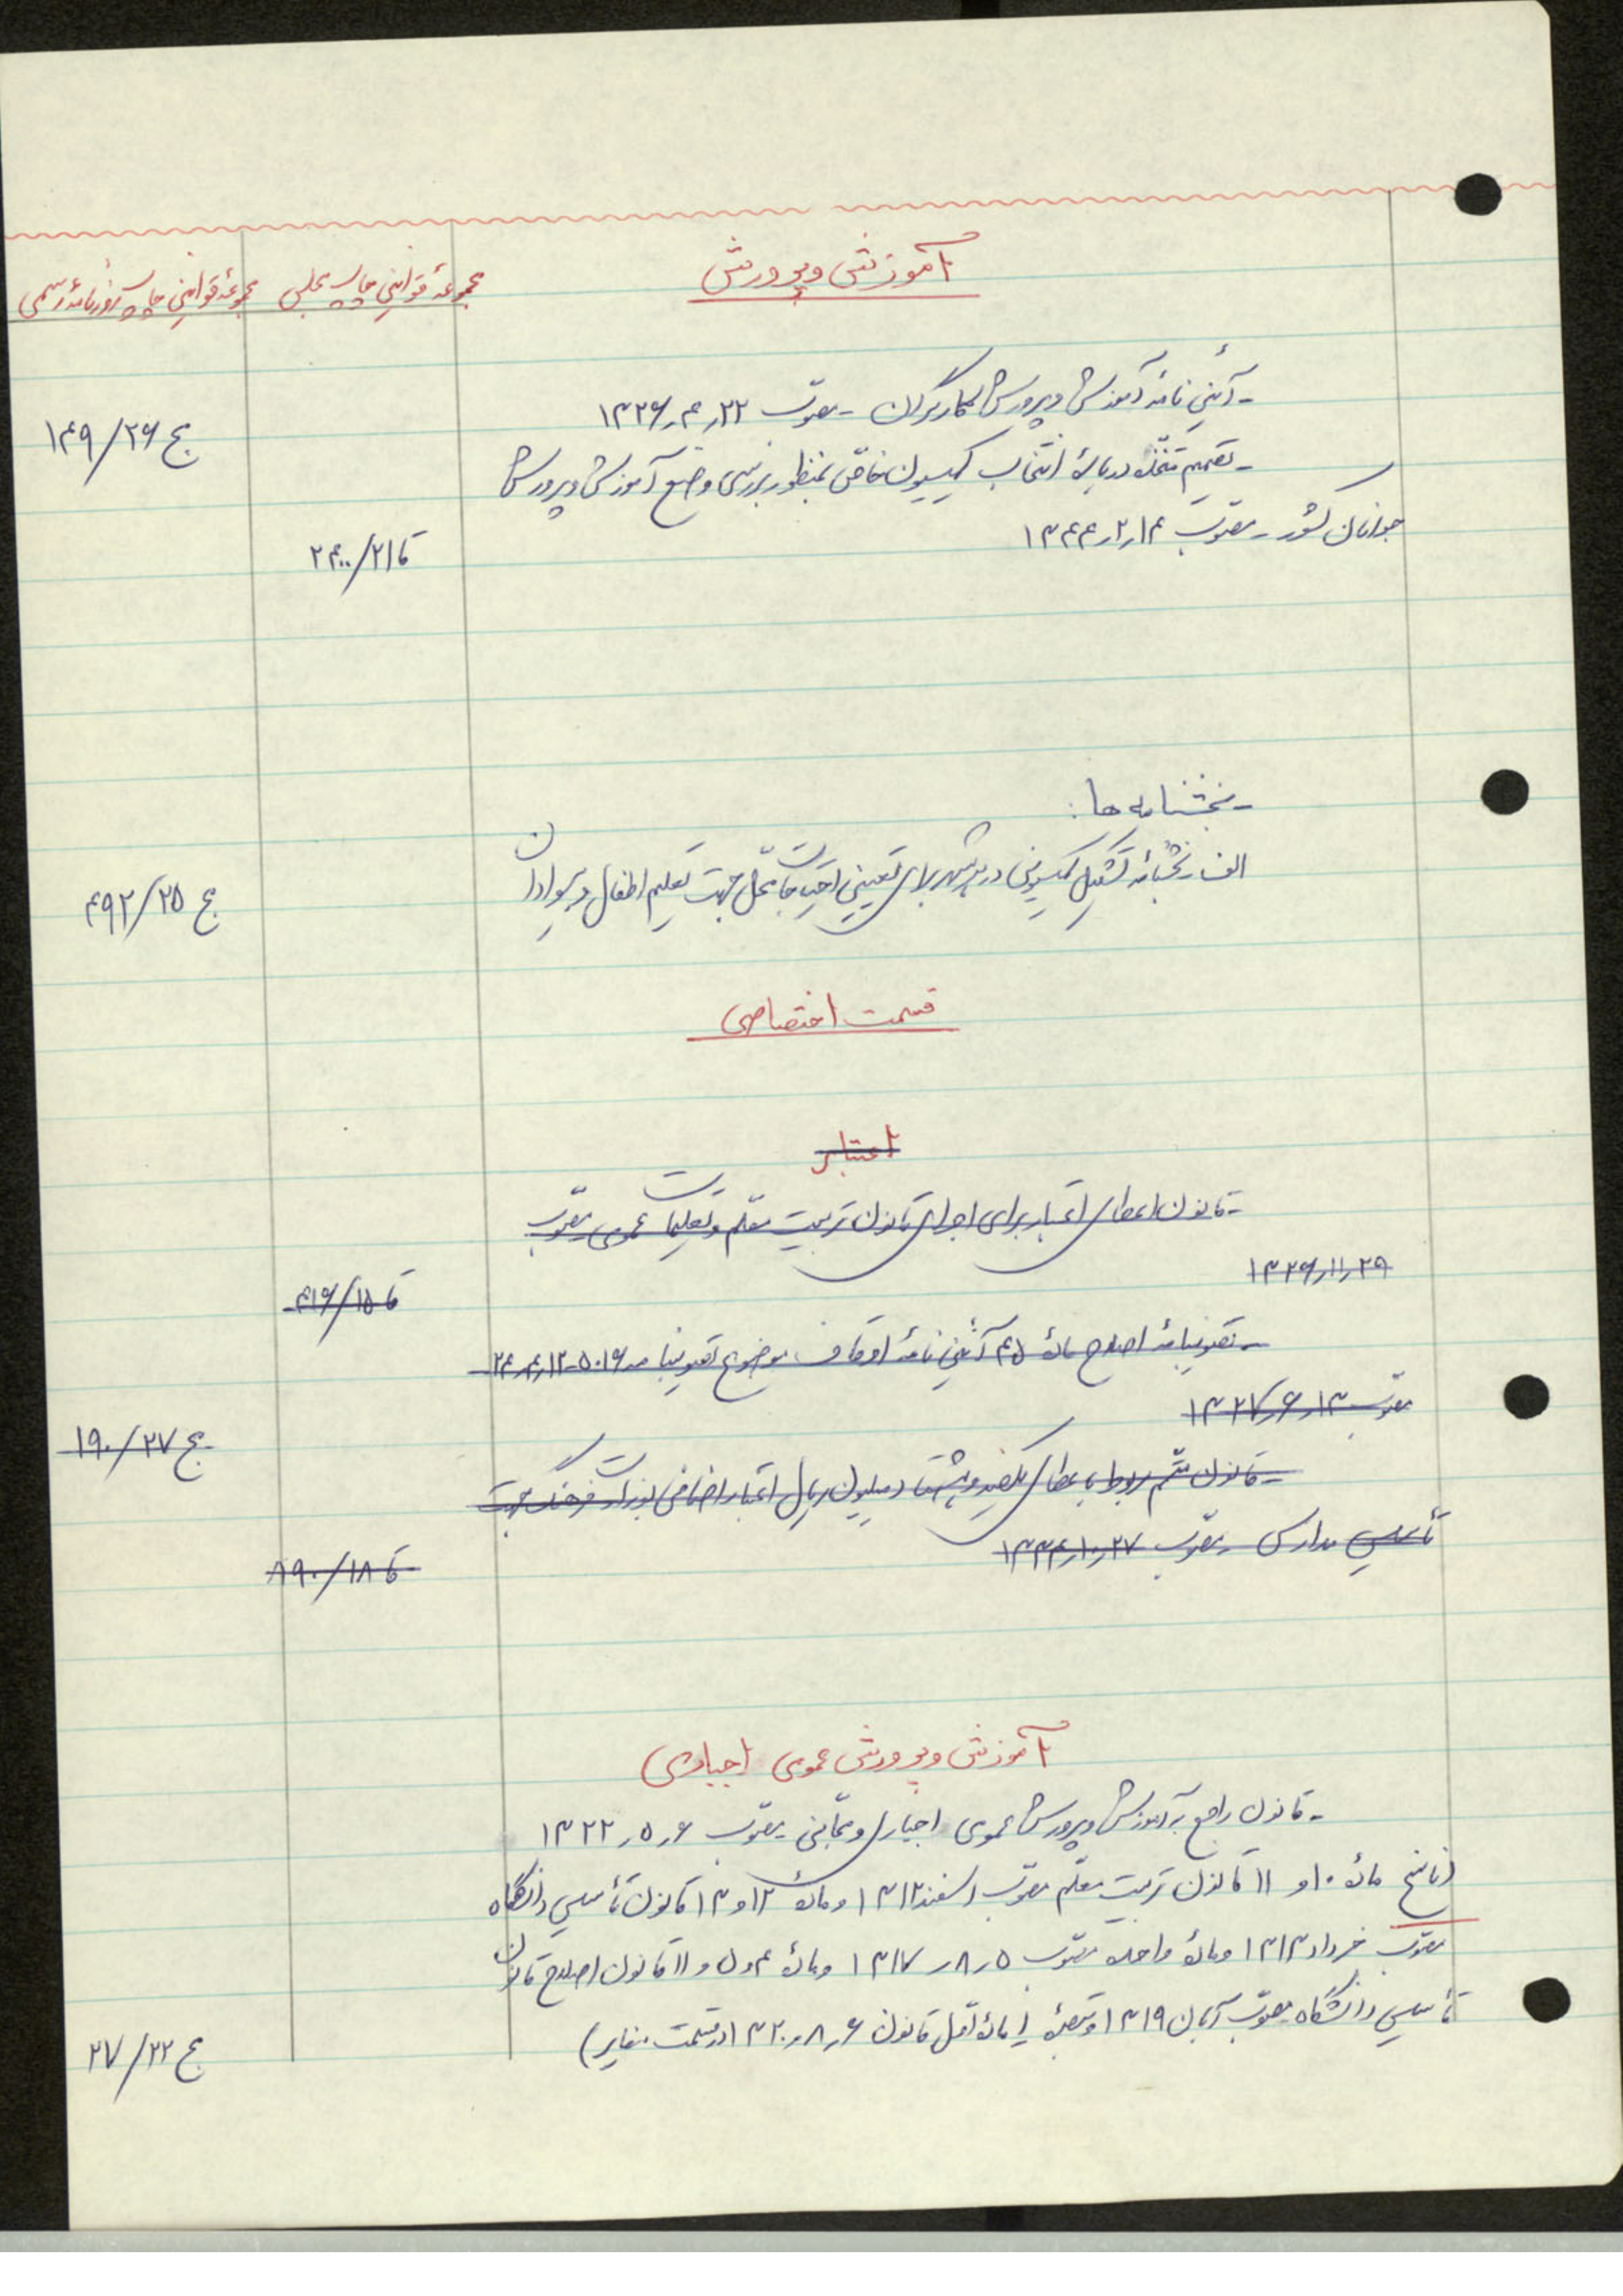 آموزش و پرورش
مجموعهٔ قوانین چاپ مجلس
مجموعهٔ قوانین چاپ روزنامهٔ رسمی
- آئین نامهٔ آموزش و پرورش کارگران - مصوّب ۲۲ر۴ر۱۳۲۶
ج ۲۶/۱۴۹
- تصمیم متخذه دربارهٔ انتخاب کمیسیون خاصّ بمنظور بررسی وضع آموزش و پرورش
جوانان کشور - مصوّب ۱۴ر۲ر۱۳۴۴
قا ۲۱/۲۴۰۰
- بخشنامه ها :
الف - بخشنامهٔ تشکیل کمیسیونی در هر شهر برای تعیین احتیاجات محلّ جهت تعلیم اطفال و بیسوادان
ج ۲۵/۴۹۲
قسمت اختصاصی
اعتبار
- قانون اعطای اعتبار برای اجرای قانون تربیت معلّم و تعلیمات عمومی مصوّب
۲۹ر۱۱ر۱۳۲۶
قا ۱۵/۴۱۶
- تصویبنامهٔ اصلاح مادهٔ ۴۵ آئین نامهٔ اوقاف موضوع تصویبنامه ۵۰۱۶-۱۲ر۴ر۲۴
مصوّب ۱۳ر۶ر۱۳۲۷
ج ۲۷/۱۹۰
- قانون متمّم مربوط باعطای یکصد و هشتاد میلیون ریال اعتبار اضافی بوزارت فرهنگ جهت
تأسیس مدارس - مصوّب ۲۷ر۱۰ر۱۳۳۴
قا ۱۸/۸۹۰
آموزش و پرورش عمومی اجباری
- قانون راجع به آموزش و پرورش عمومی اجباری و مجّانی مصوّب ۶ر۵ر۱۳۲۲
(ناسخ مادهٔ ۱۰ و ۱۱ قانون تربیت معلّم مصوّب اسفند ۱۳۱۲ و مادهٔ ۱۲ و ۱۳ قانون تأسیس دانشگاه
مصوّب خرداد ۱۳۱۳ و مادهٔ واحده مصوّب ۵ر۸ر۱۳۱۷ و مادهٔ ۴ و ۵ و ۱۱ قانون اصلاح قانون
تأسیس دانشگاه مصوّب آبان ۱۳۱۹ و تبصرهٔ ۱ مادهٔ اوّل قانون ۶ر۸ر۱۳۲۰ در قسمت مغایر)
ج ۲۲/۲۷